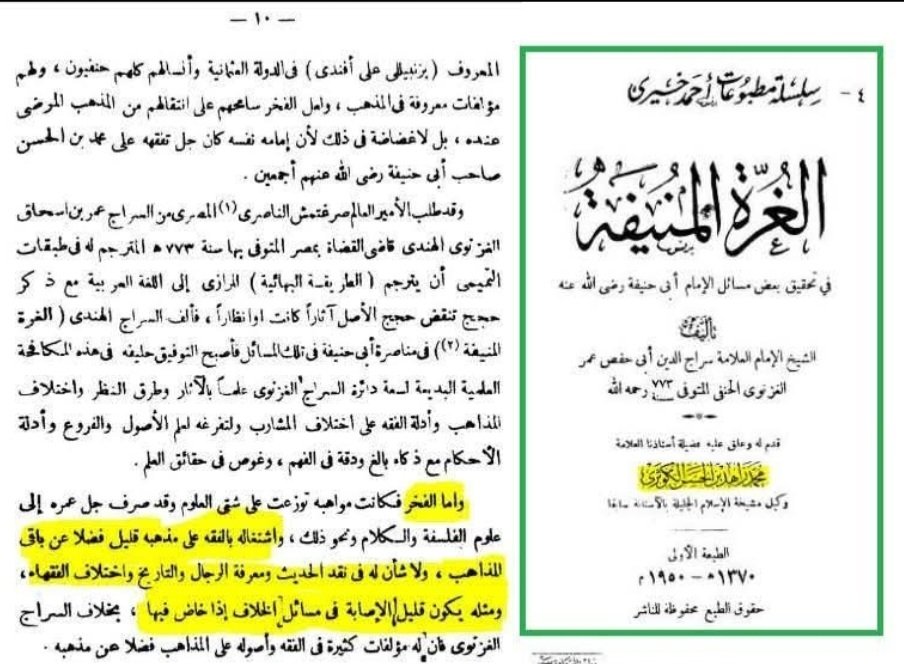 — ١٠ —
المعروف ( بزنبيللى على أفندى ) فى الدولة العثمانية وأنسالهم كلهم حنفيون ، ولهم
مؤلفات معروفة فى المذهب ، ولعل الفخر سامحهم على انتقالهم من المذهب المرضى
عنده ، بل لاغضاضة فى ذلك لأن إمامه نفسه كان جل تفقهه على محمد بن الحسن
صاحب أبى حنيفة رضى الله عنهم أجمعين .
وقد طلب الأمير العالم صرغتمش الناصرى (١) المصرى من السراج عمر بن اسحاق
الغزنوى الهندى قاضى القضاة بمصر المتوفى بها سنة ٧٧٣ ه المترجم له فى طبقات
التميمى أن يترجم ( الطريقة البهائية ) للرازى إلى اللغة العربية مع ذكر
حجج تنقض حجج الأصل آثاراً كانت اوانظاراً ، فألف السراج الهندى ( الغرة
المنيفة (٢)) فى مناصرة أبى حنيفة فى تلك المسائل فأصبح التوفيق حليفه فى هذه المكافحة
العلمية البديعة لسعة دائرة السراج الغزنوى علماً بالآثار وطرق النظر واختلاف
المذاهب وأدلة الفقه على اختلاف المشارب ولتفرغه لعلم الأصول والفروع وأدلة
الأحكام مع ذكاء بالغ ودقة فى الفهم ، وغوص فى حقائق العلم .
واما الفخر فكانت مواهبه توزعت على شتى العلوم وقد صرف جل عمره إلى
علوم الفلسفة والكلام ونحو ذلك ، واشتغاله بالفقه على مذهبه قليل فضلا عن باقى
المذاهب ، ولا شأن له فى نقد الحديث ومعرفة الرجال والتاريخ واختلاف الفقهاء ،
ومثله يكون قليل الإصابة فى مسائل الخلاف إذا خاض فيها ، بخلاف السراج
الغزنوى فان له مؤلفات كثيرة فى الفقه وأصوله على المذاهب فضلا عن مذهبه .
٤ - سلسلة مطبوعات أحمد خيرى
الغرة المنيفة
فى تحقيق بعض مسائل الإمام أبى حنيفة رضى الله عنه
تأليف
الشيخ الإمام العلامة سراج الدين أبى حفص عمر
الغزنوى الحنفى المتوفى ٧٧٣ سنة رحمه الله
قدم له وعلق عليه فضيلة أستاذنا العلامة
محمد زاهد بن الحسن الكوثرى
وكيل مشيخة الإسلام الجليلة بالآستانة سابقا
الطبعة الأولى
١٣٧٠ه - ١٩٥٠م
حقوق الطبع محفوظة للناشر